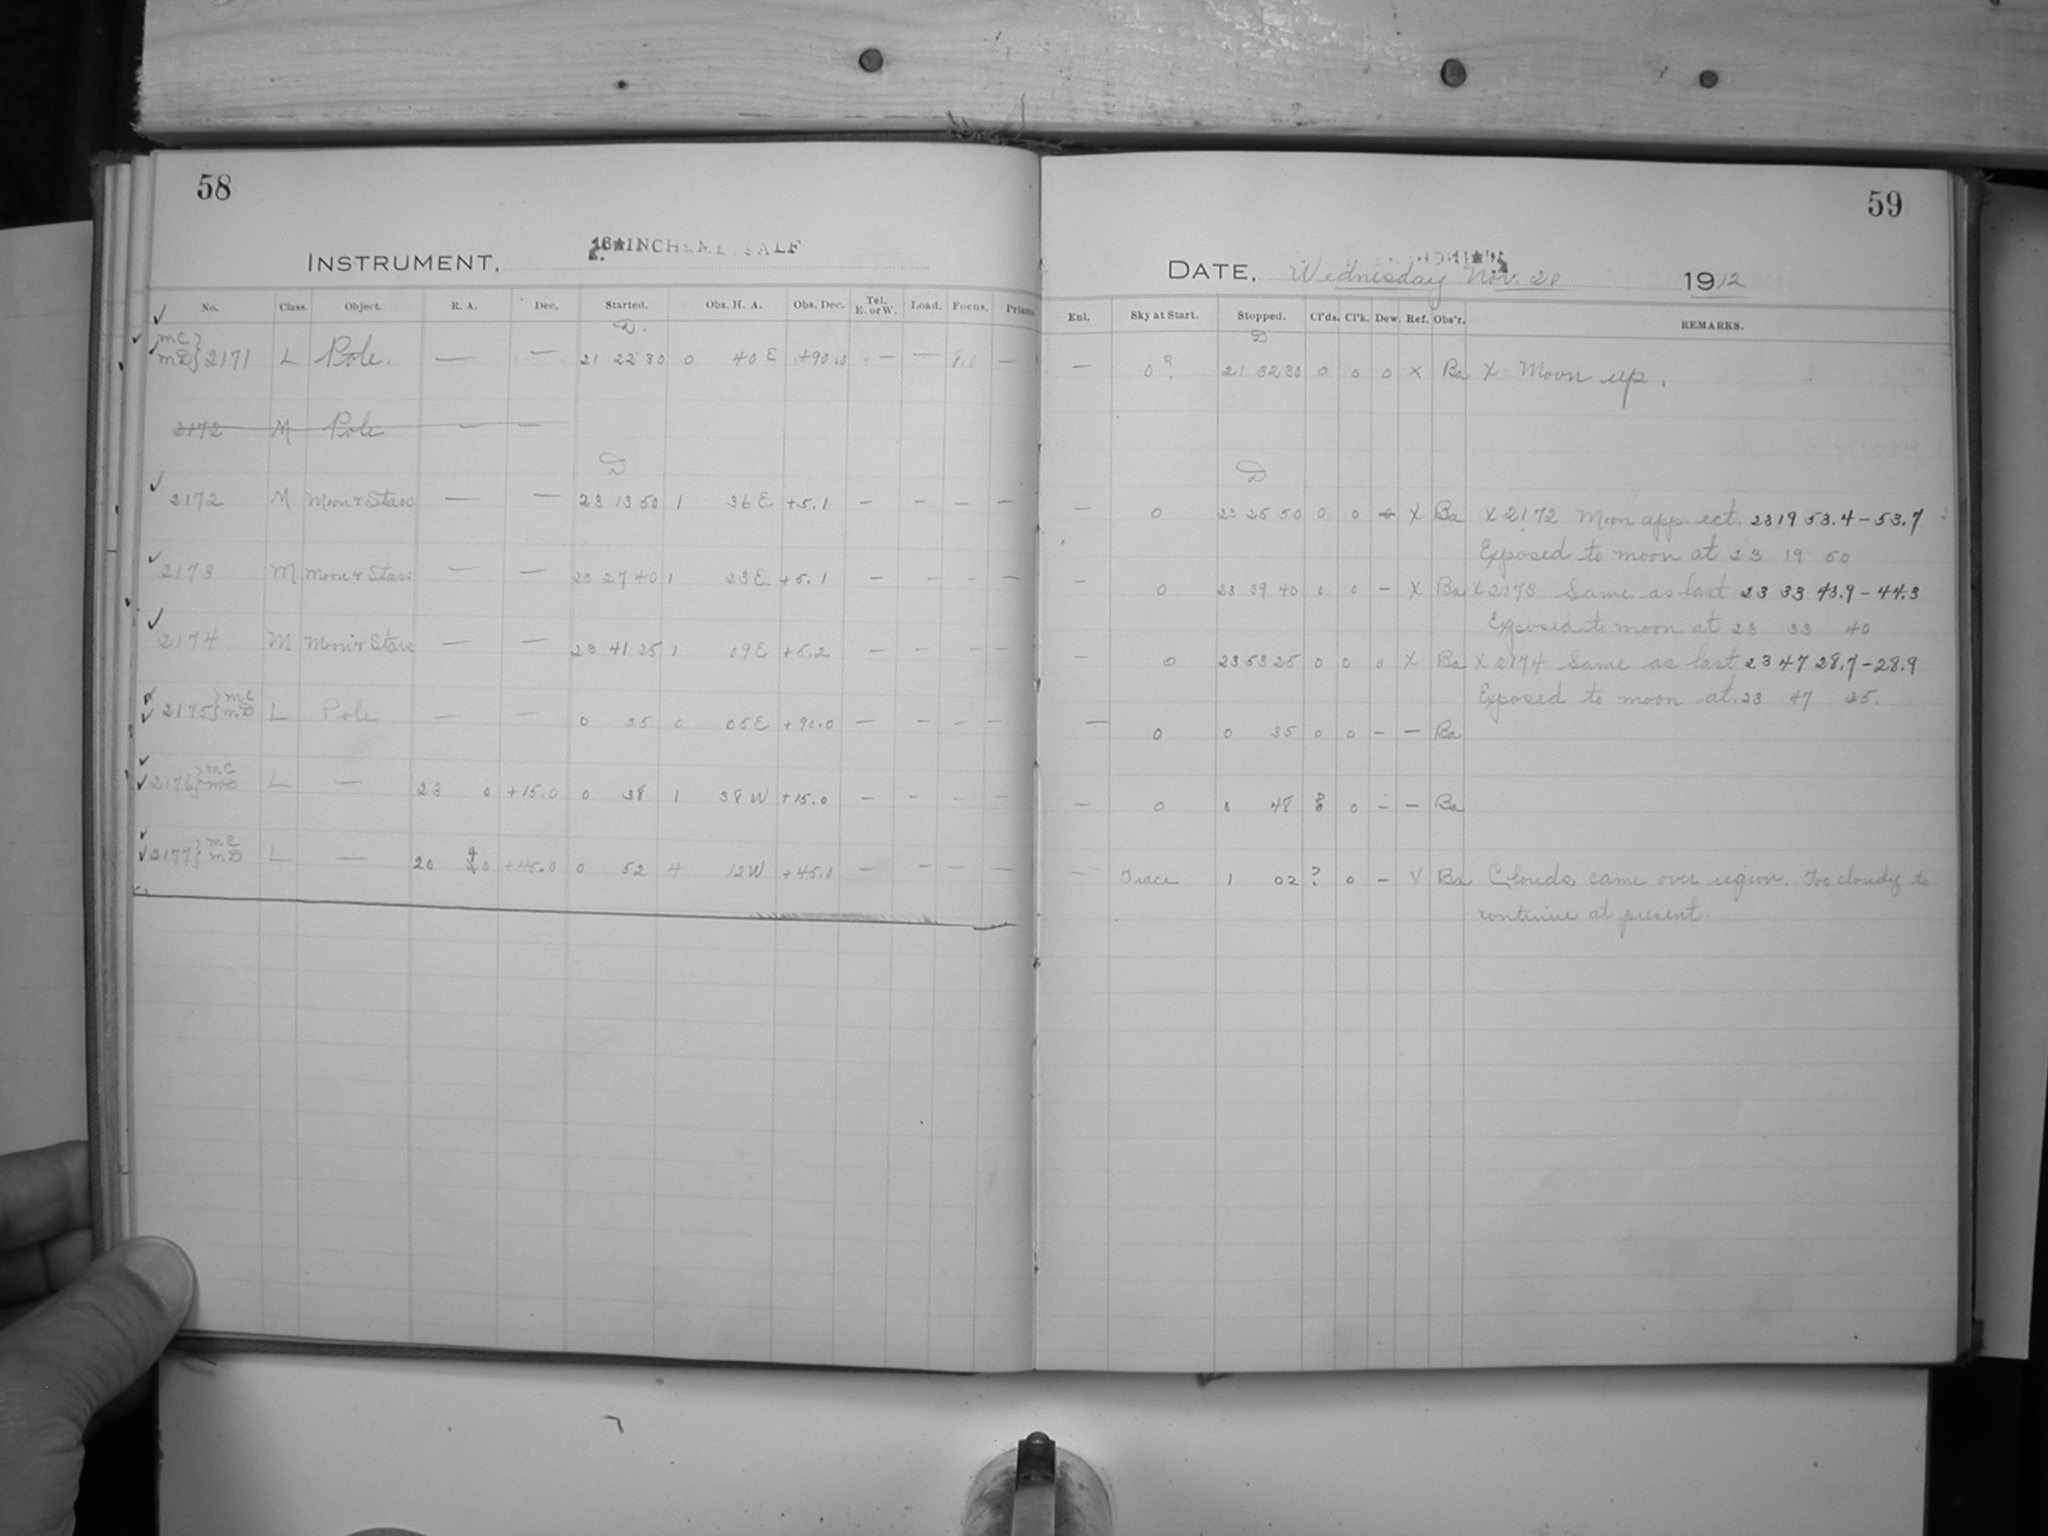 58
INSTRUMENT,
No. Class. Object. R. A. Dec. Started. Obs. H. A. Obs. Dec. Tel. E. or W. Load. Focus. Prisms
D.
MC }
MD } 2171 L Pole. — — 21 22 30 0 40 E +90.0 — — 8.0 —
2172 M Pole — —
D
2172 M Moon & Stars — — 23 13 50 1 36 E +5.1 — — — —
2173 M Moon & Stars — — 23 27 40 1 23 E +5.1 — — — —
2174 M Moon & Stars — — 23 41 25 1 09 E +5.2 — — — —
2175 } MC MD L Pole — — 0 25 0 05 E +90.0 — — — —
2176 } MC MD L — 23 0 +15.0 0 38 1 38 W +15.0 — — — —
2177 } MC MD L — 20 +45.0 0 52 4 12 W +45.0 — — — —
59
DATE, Wednesday Nov. 20 1912
Enl. Sky at Start. Stopped. Cl'ds. Cl'k. Dew. Ref. Obs'r. REMARKS.
D
— 0? 21 32 30 0 0 0 X Ba X Moon up.
D
— 0 23 25 50 0 0 X Ba X 2172 Moon app. ect. 23 19 53.4 – 53.7
Exposed to moon at 23 19 50
— 0 23 39 40 0 0 — X Ba X 2173 Same as last 23 33 43.9 – 44.3
Exposed to moon at 23 33 40
— 0 23 53 25 0 0 0 X Ba X 2174 Same as last 23 47 28.7 – 28.9
Exposed to moon at 23 47 25.
— 0 0 35 0 0 — — Ba
— 0 0 48 0 — — Ba
— Trace 1 02 ? 0 — Ba Clouds came over region. Too cloudy to
continue at present.